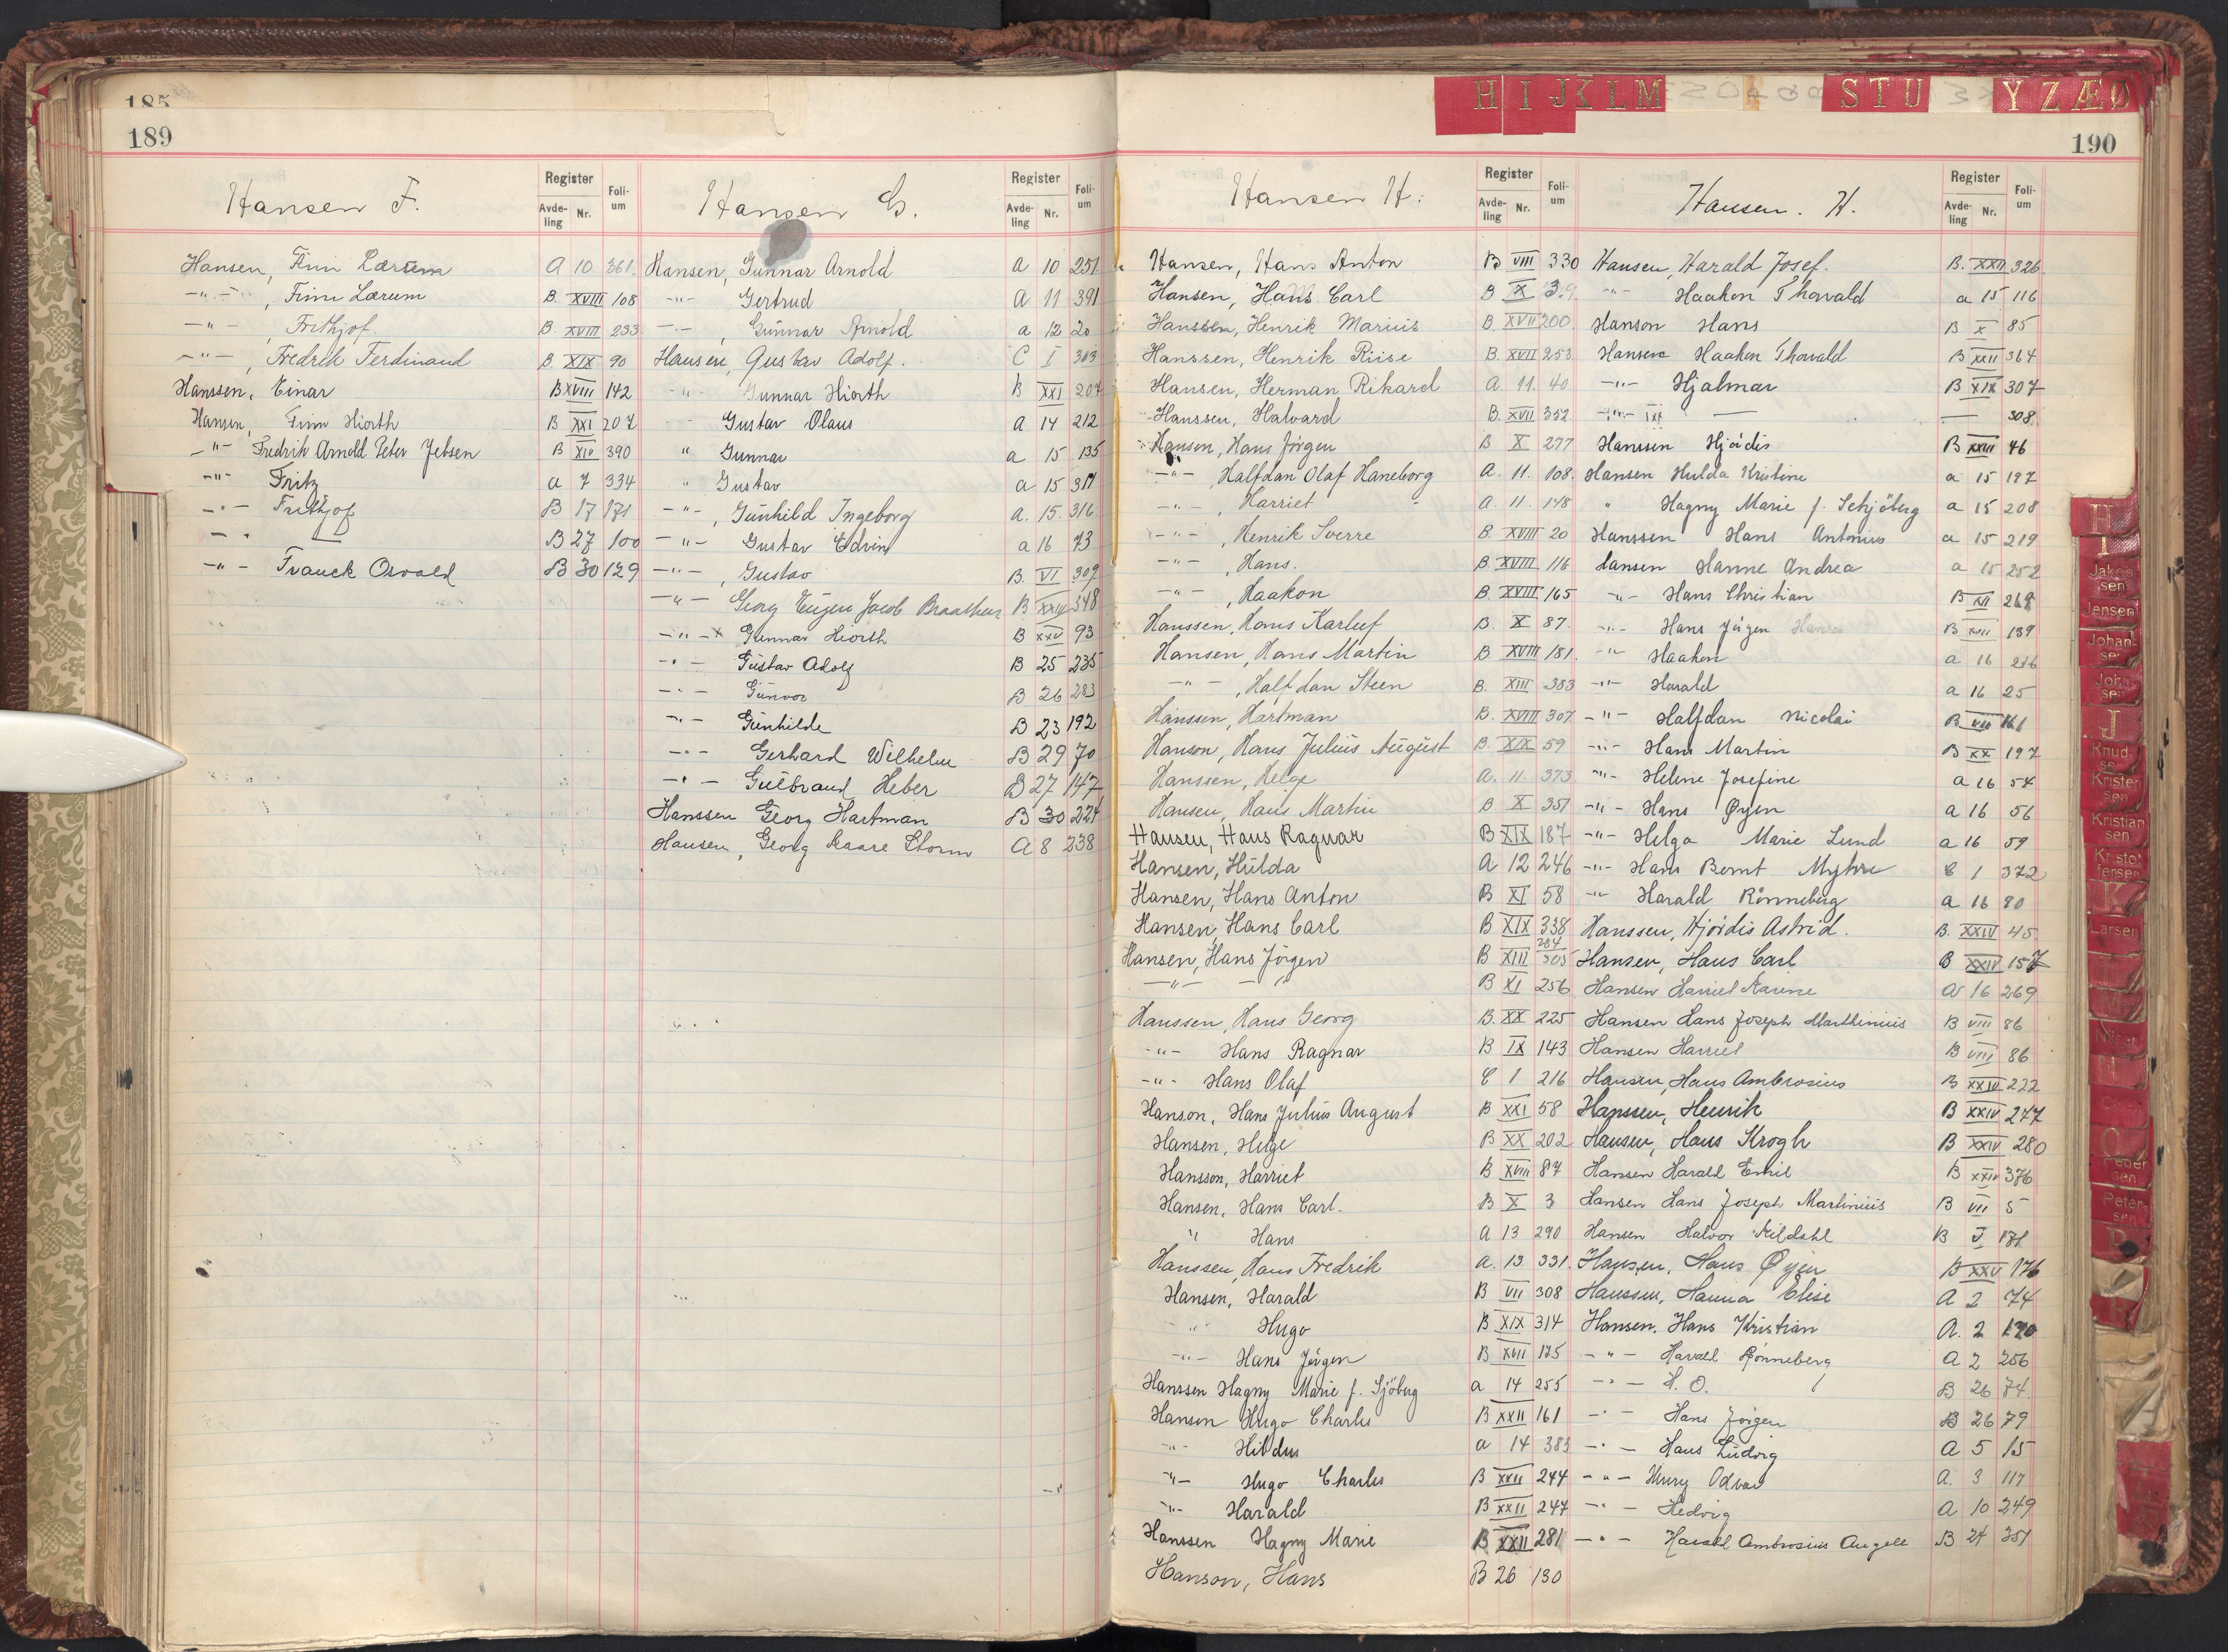 185
189
Hansen F.
Register
Avdeling Nr.
Folium
Hansen, Finn Lærum A 10 361.
-"- , Finn Lærum B. XVIII 108
-"- , Frithjof. B. XVIII 233
-"- , Fredrik Ferdinand B. XIX 90
Hanssen, Einar B XVIII 142
Hansen, Finn Hiorth B XXI 207
-"- Fredrik Arnold Peter Jebsen B XIV 390
-"- Fritz a 7 334
-"- Frithjof B 17 171
-"- B 27 100
-"- Franck Osvald B 30 129
Hansen G.
Register
Avdeling Nr.
Folium
Hansen, Gunnar Arnold a 10 251
-"- Gertrud A 11 391
-"- , Gunnar Arnold a 12 20
Hansen, Gustav Adolf. C I 303
-"- Gunnar Hiorth B XXI 207
Gustav Olaus a 14 212
" Gunnar a 15 135
" Gustav a 15 317
-"- , Gunhild Ingeborg a. 15. 316.
-"- Gustav Edvin a 16 73
-"- , Gustav B. VI 309
-"- Georg Eugen Jacob Braathen B XXIV 348
-"-x Gunnar Hiorth B XXV 93
-"- Gustav Adolf B 25 235
-"- Gunvor B 26 283
-"- Gunhilde B 23 192
-"- Gerhard Wilhelm B 29 70
-"- Gulbrand Heber B 27 147
Hanssen Georg Hartman B 30 224
Hansen, Georg Kaare Storm A 8 238
H I J K L M S T U Y Z Æ Ø
190
Hansen H.
Register
Avdeling Nr.
Folium
Hansen, Hans Anton B VIII 330
Hansen, Hans Carl B X 3
Hanssen, Henrik Marius B. XVII 200
Hanssen, Henrik Riise B. XVII 253
Hansen, Herman Rikard A. 11. 40
Hanssen, Halvard B. XVII 352
Hansen, Hans Jörgen B X 277
-"- , Halfdan Olaf Haneborg A. 11. 108.
-"- , Harriet A. 11. 148
-"- , Henrik Sverre B. XVIII 20
-"- , Hans. B. XVIII 116
-"- , Haakon B. XVIII 165
Hanssen, Hans Karluf B. X 87.
Hansen, Hans Martin B XVIII 181.
-"- , Halfdan Steen B. XIII 383
Hanssen, Hartman B. XVIII 307
Hanson, Hans Julius August B. XIX 59
Hanssen, Helge A. 11 373
Hansen, Hans Martin B X 351
Hansen, Hans Ragnar B XIX 187
Hansen, Hulda A 12 246
Hansen, Hans Anton B XI 58
Hansen, Hans Carl B XIX 338
Hansen, Hans Jörgen B XIII 284 305
-"- -"- B XI 256
Hanssen, Hans Georg B. XX 225
-"- Hans Ragnar B IX 143
-"- Hans Olaf C 1 216
Hanson, Hans Julius August B XXI 58
Hansen, Helge B XX 202
Hansson, Harriet B XVIII 87
Hansen, Hans Carl. B X 3
" Hans a 13 290
Hanssen, Hans Fredrik a. 13. 331.
Hansen, Harald B VII 308
" Hugo B XIX 314
-"- Hans Jörgen B XVII 175
Hanssen Hagny Marie f. Sjöberg a 14 255
Hansen Hugo Charles B XXII 161
-"- a 14 383
-"- Hugo Charles B XXII 244
-"- Harald B XXII 247
Hanssen Hagny Marie B XXII 281
Hanson, Hans B 26 130
Hansen. H.
Register
Avdeling Nr.
Folium
Hansen, Harald Josef. B. XXII 326.
-"- Haakon Thorvald a 15 116
Hanson Hans B X 85
Hansen Haakon Thorvald B XXII 364
-"- Hjalmar B XIX 307
-"- — — 308
Hanssen Hjördis B XXIII 46
Hansen Hulda Kristine a 15 197
" Hagny Marie f. Schjöberg a 15 208
Hanssen Hans Antonius a 15 219
Hansen Hanne Andrea a 15 252
-"- Hans Christian B XII 268
-"- Hans Jörgen B XVII 139
-"- Haakon a 16 216
-"- Harald a 16 25
-"- Halfdan Nicolai B XXII 161
-"- Hans Martin B XX 197
-"- Helene Josefine a 16 54
-"- Hans Øyen a 16 56
-"- Helga Marie Lund a 16 59
-"- Hans Bernt Myhre C 1 372
-"- Harald Rönneberg a 16 80
Hanssen, Hjördis Astrid. B. XXIV 45
Hansen, Hans Carl B XXIV 157
Hansen Harriet Karine A 16 269
Hansen Hans Joseph Marthinius B VIII 86
Hansen Harriet B VIII 86
Hansen, Hans Ambrosius B XXIV 222
Hanssen, Henrik B XXIV 247
Hansen, Hans Krogh B XXIV 280
Hansen Harald Emil B XXIV 376
Hansen Hans Joseph Martinius B VII 5
Hansen Halvor Kildahl B I 171
Hansen, Hans Øyen B XXV 176
Hanssen, Hanna Elise A 2 74
Hansen, Hans Kristian A. 2 170
-"- Harald Rönneberg A 2 256
-"- H. O. B 26 74
-"- Hans Jörgen B 26 79
-"- Hans Ludvig A 5 15
-"- Henry Odvar A. 3 117
-"- Hedvig A 10 249
-"- Harald Ambrosius Angell B 24 351
H
I
Jakobsen
Jensen
Johansen
Johnsen
J
Knudsen
Kristensen
Kristiansen
Kristoffersen
K
Larsen
Pedersen
Petersen